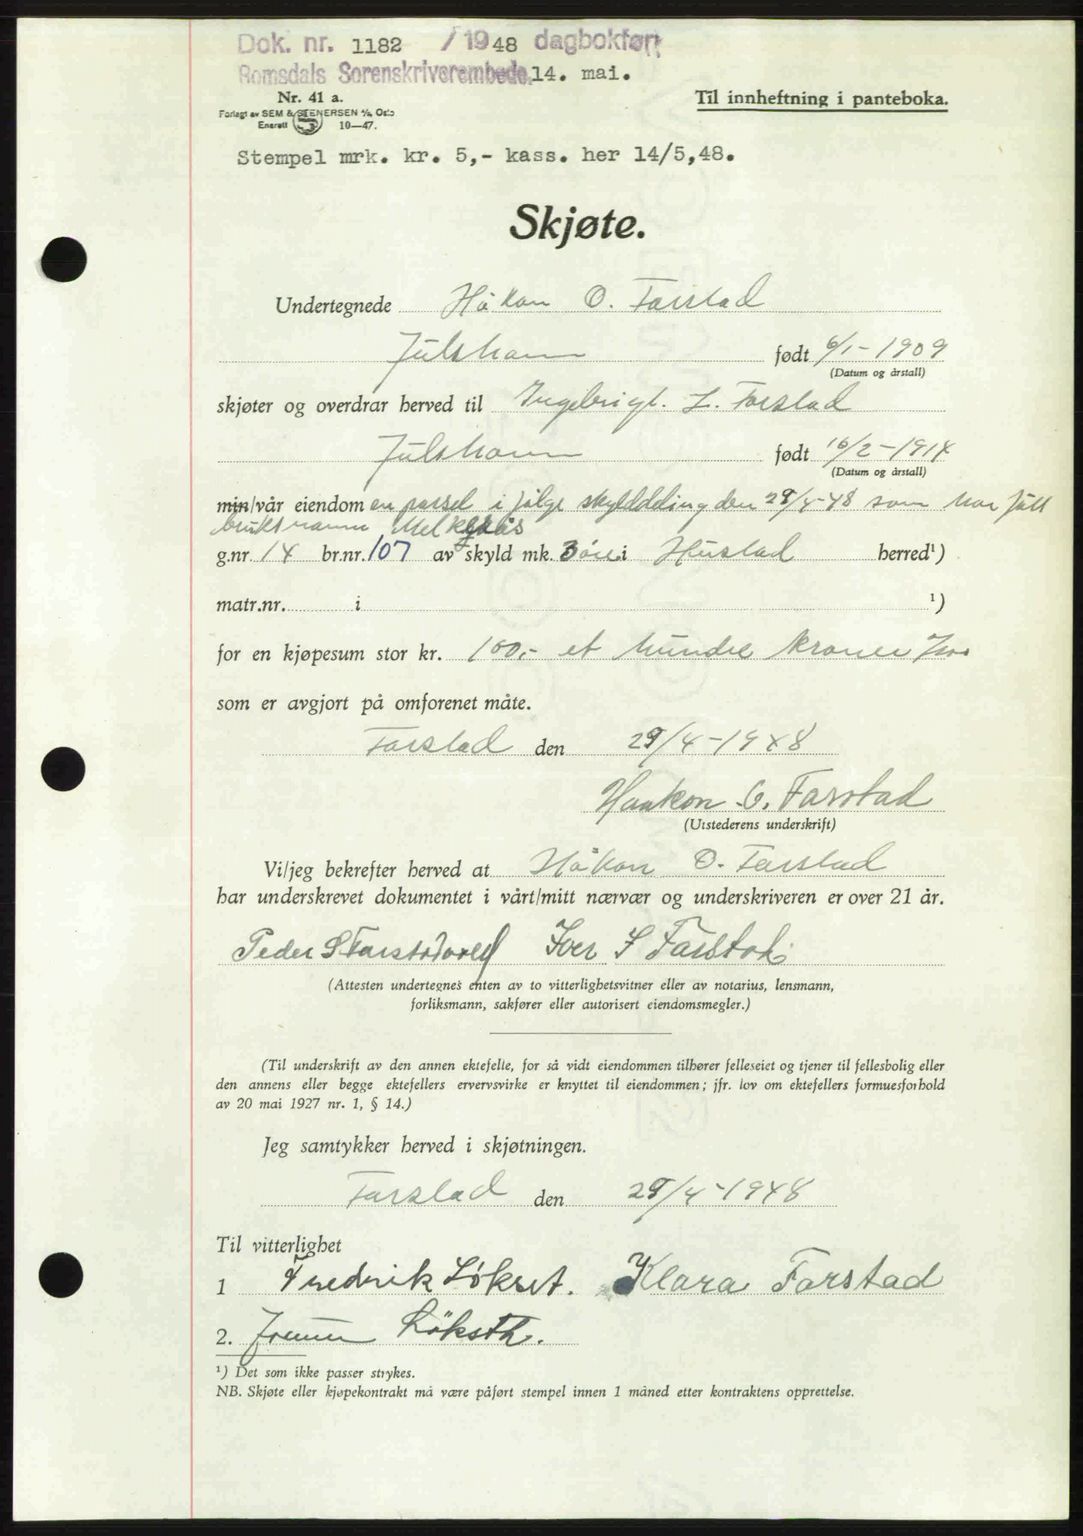 Dok. nr. 1182 / 1948 dagbokført
Romsdals Sorenskriverembede. 14. mai.
Nr. 41 a.
Til innheftning i panteboka.
Forlagt av SEM & STENERSEN A/S, Oslo
Enerett 10—47.
Stempel mrk. kr. 5,- kass. her 14/5,48.
Skjøte.
Undertegnede Håkon O. Farstad
Julshamn født 6/1-1909
(Datum og årstall)
skjøter og overdrar herved til Ingebrigt. L. Farstad
Julshamn født 16/2-1914
(Datum og årstall)
min/vår eiendom en parsel i følge skylddeling den 29/4-48 som har fått
bruksnamn Melkgås
g.nr. 14 br.nr. 107 av skyld mk. 3 øre i Hustad herred¹)
matr.nr. i ¹)
for en kjøpesum stor kr. 100,- et hundre kroner
som er avgjort på omforenet måte.
Farstad den 29/4-1948
Haakon O. Farstad
(Utstederens underskrift)
Vi/jeg bekrefter herved at Håkon O. Farstad
har underskrevet dokumentet i vårt/mitt nærvær og underskriveren er over 21 år.
Peder S Iver S Farstad
(Attesten undertegnes enten av to vitterlighetsvitner eller av notarius, lensmann,
forliksmann, sakfører eller autorisert eiendomsmegler.)
(Til underskrift av den annen ektefelle, for så vidt eiendommen tilhører felleseiet og tjener til fellesbolig eller
den annens eller begge ektefellers ervervsvirke er knyttet til eiendommen; jfr. lov om ektefellers formuesforhold
av 20 mai 1927 nr. 1, § 14.)
Jeg samtykker herved i skjøtningen.
Farstad den 29/4-1948
Til vitterlighet
1 Fredrik Løkset. Klara Farstad
2.
¹) Det som ikke passer strykes.
NB. Skjøte eller kjøpekontrakt må være påført stempel innen 1 måned etter kontraktens opprettelse.